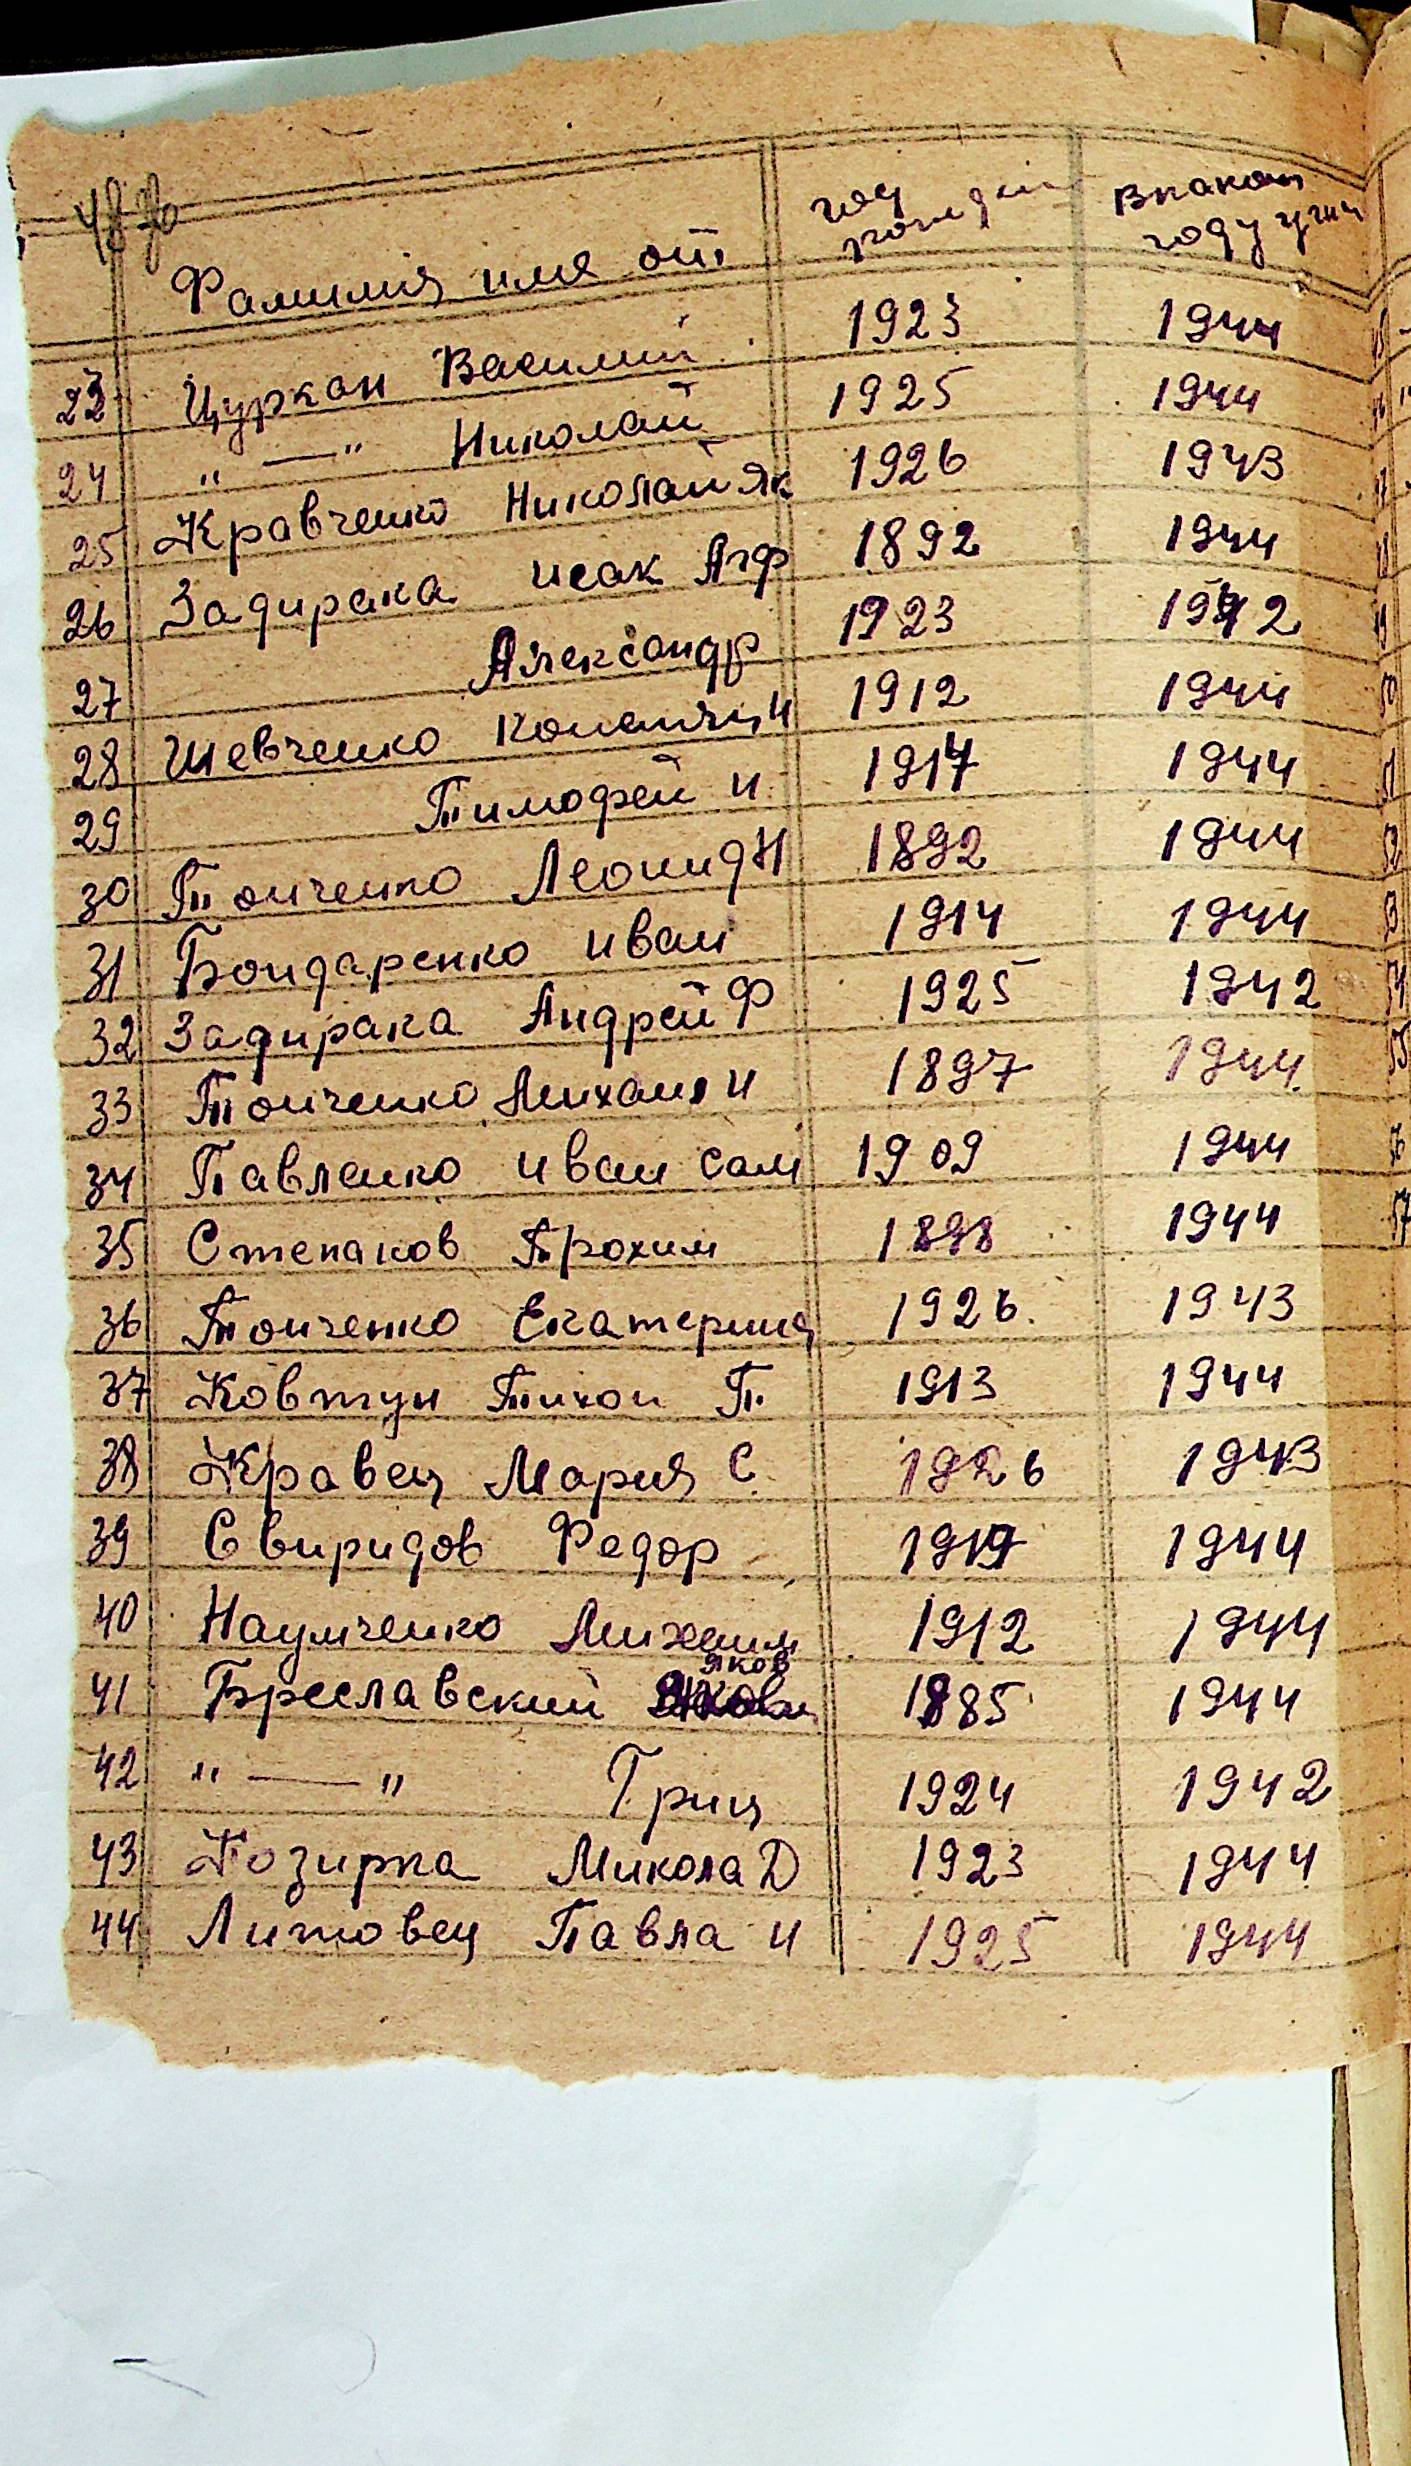 Фамилия имя от год рожден Вкаком году угнан
23 Цуркан Василий 1923 1944
24 " — " Николай 1925 1944
25 Кравченко Николай Як 1926 1943
26 Задирака исак Агф 1892 1944
27 Александр 1923 1942
28 Шевченко Констянци 1912 1944
29 Тимофей и 1917 1944
30 Тонченко Леонид Н 1892 1944
31 Бондаренко иван 1914 1944
32 Задирака Андрей Ф 1925 1942
33 Тонченко Михаил и 1897 1944
34 Павленко иван сам 1909 1944
35 Степанов Трохим 1898 1944
36 Тонченко Екатерина 1926 1943
37 Ковтун Тихон П 1913 1944
38 Кравец Мария С 1926 1943
39 Свиридов Федор 1919 1944
40 Наумченко Михаил 1912 1944
41 Бреславский яков 1885 1944
42 " — " Гриц 1924 1942
43 Козирка Микола Д 1923 1944
44 Литовец Павла и 1925 1944